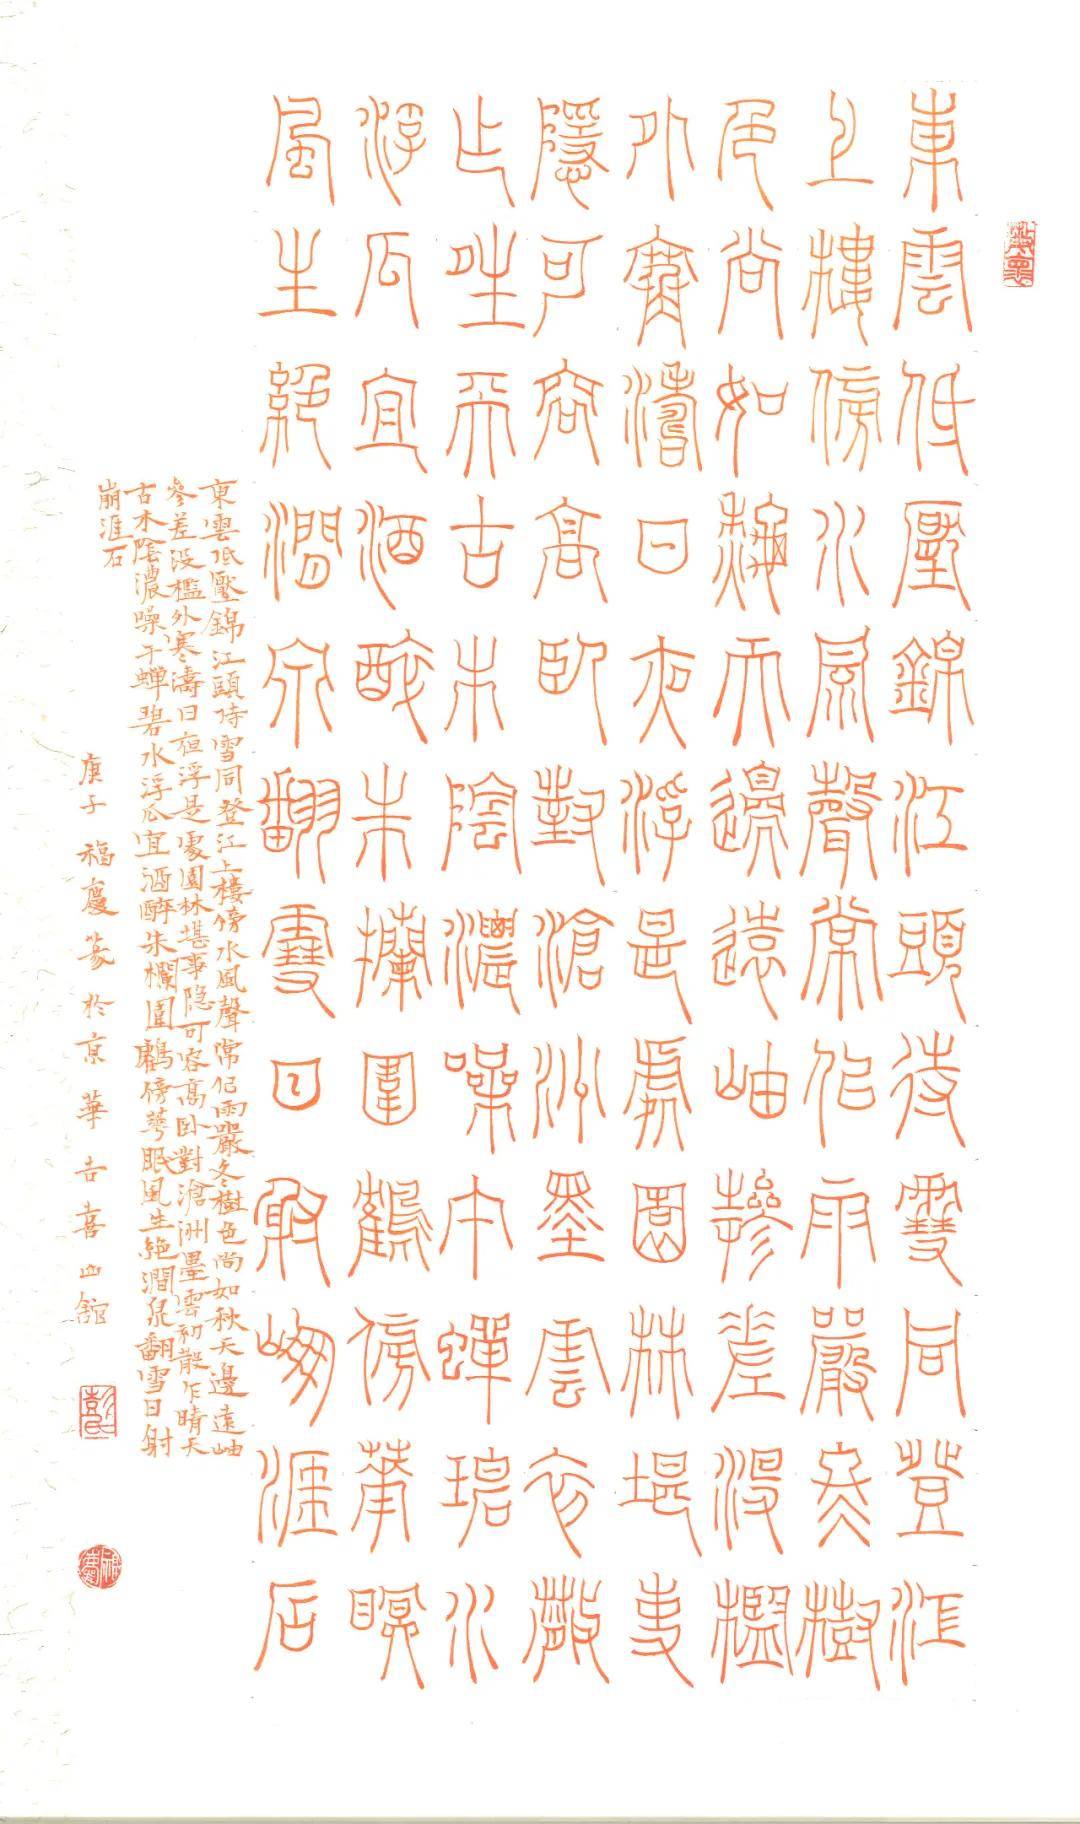 東雲低壓錦江頭待雪同登江
上樓傍水風聲常似雨嚴冬樹
色尚如秋天邊遠岫參差没檻
外寒濤日夜浮是處園林堪事
隱可容高臥對滄洲墨雲初散
乍晴天古木陰濃噪午蟬碧水
浮瓜宜酒醉朱欄圍鶴傍華眠
風生絕澗泉翻雪日射崩涯石
東雲低壓錦江頭待雪同登江上樓傍水風聲常似雨嚴冬樹色尚如秋天邊遠岫
參差没檻外寒濤日夜浮是處園林堪事隱可容高臥對滄洲墨雲初散乍晴天
古木陰濃噪午蟬碧水浮瓜宜酒醉朱欄圍鶴傍華眠風生絕澗泉翻雪日射
崩涯石
庚子福慶篆於京華吉喜山館